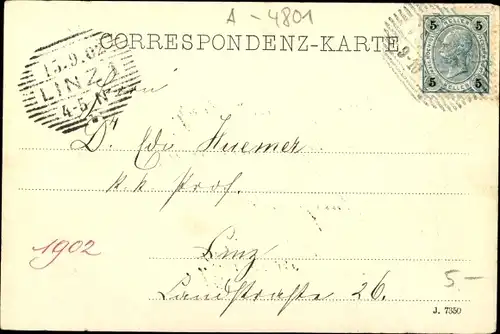 A - 4801
CORRESPONDENZ-KARTE
15.9.02
LINZ 1
4-5 N
5 5
5 5
Herrn
Dr Edu Huemer
k.k. Prof.
1902
Linz
Landstraße 26.
5.-
J. 7350